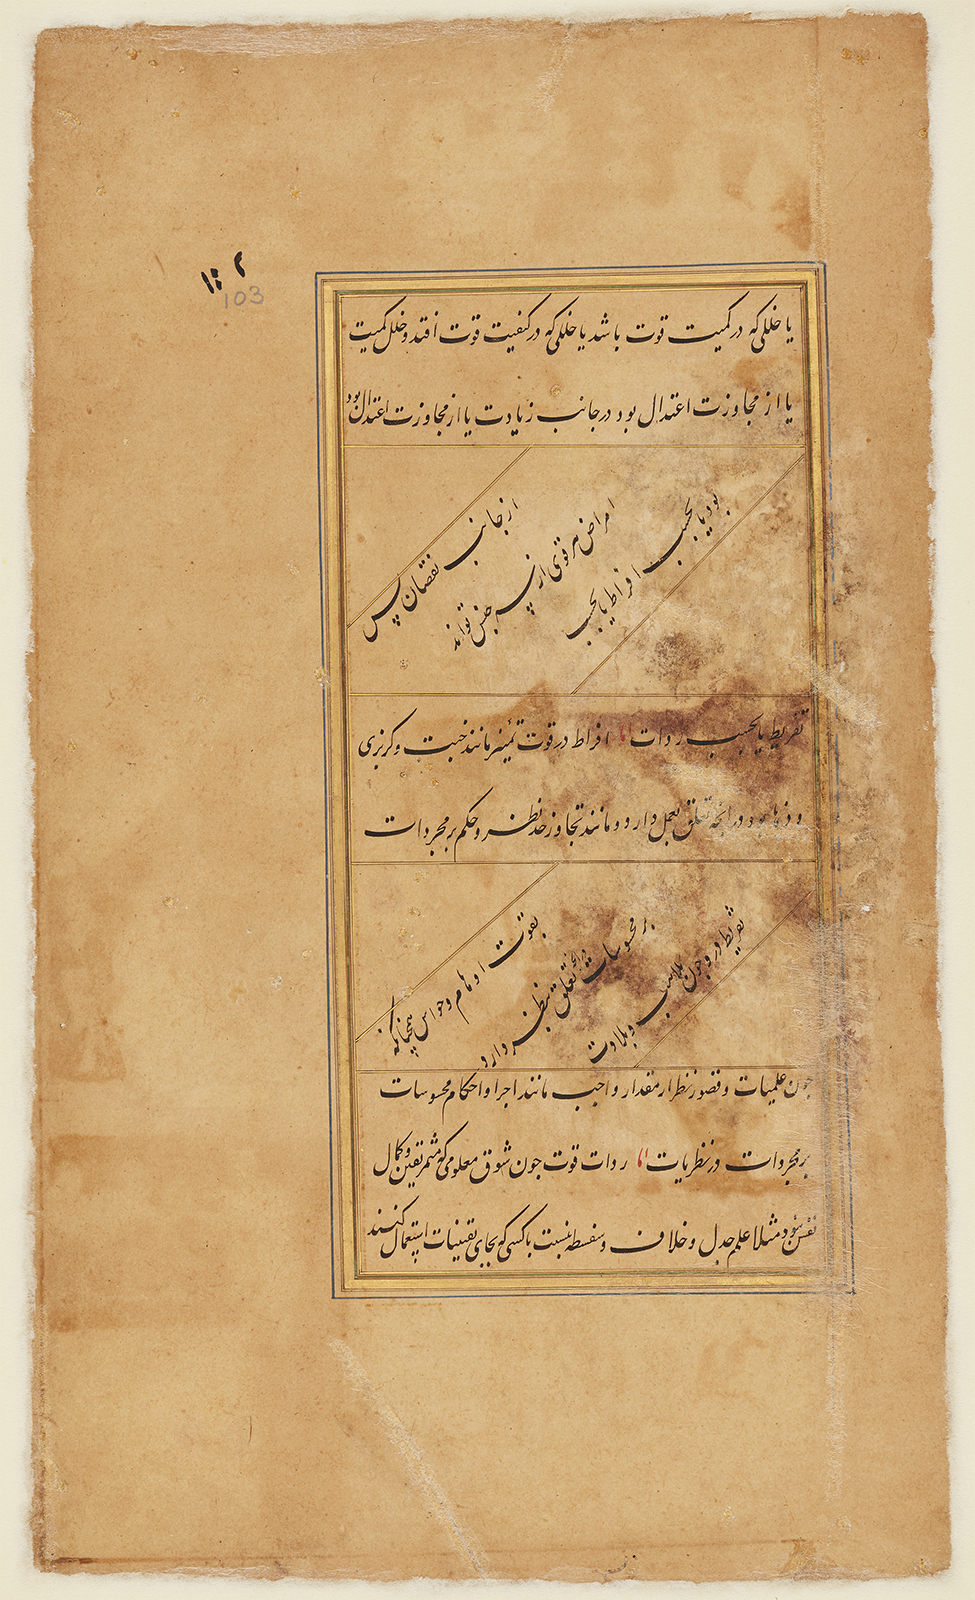 ۱۰۲
103
یا خللی که در کمیت قوت باشد یا خللی که در کیفیت قوت افتد و خلل کمیت
یا از مجاوزت اعتدال بود در جانب زیادت یا از مجاوزت اعتدال بود
از جانب نقصان پس
امراض هر قوی از سه جنس تواند
بود یا بحسب افراط یا بحسب
تفریط یا بحسب ردات اما افراط در قوت تمییز مانند خبث و کربزی
و دها بود در انچه تعلق بعمل دارد و مانند تجاوز حد نظر و حکم بر مجردات
بقوت اوهام و حواس همچنانکه
بر محسوسات در انچه تعلق بنظر دارد
تفریط در و چون بلاهت و بلادت
چون عملیات و قصور نظر از مقدار واجب مانند اجراء احکام محسوسات
بر مجردات در نظریات اما ردات قوت چون شوق بعلومی که مثمر یقین و کمال
نفس نبود مثلا علم جدل و خلاف و سفسطه نسبت با کسی که بجای یقینیات استعمال کنند